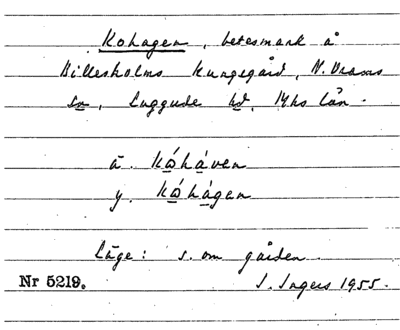 Kohagen, betesmark å
Billesholms Kungsgård, N. Vrams
sn, Luggude hd, Mhs län.
ä. kǿhá̱ven
y. kǿhá̱gan
Läge: s. om gården.
Nr 5219. I. Ingers 1955.